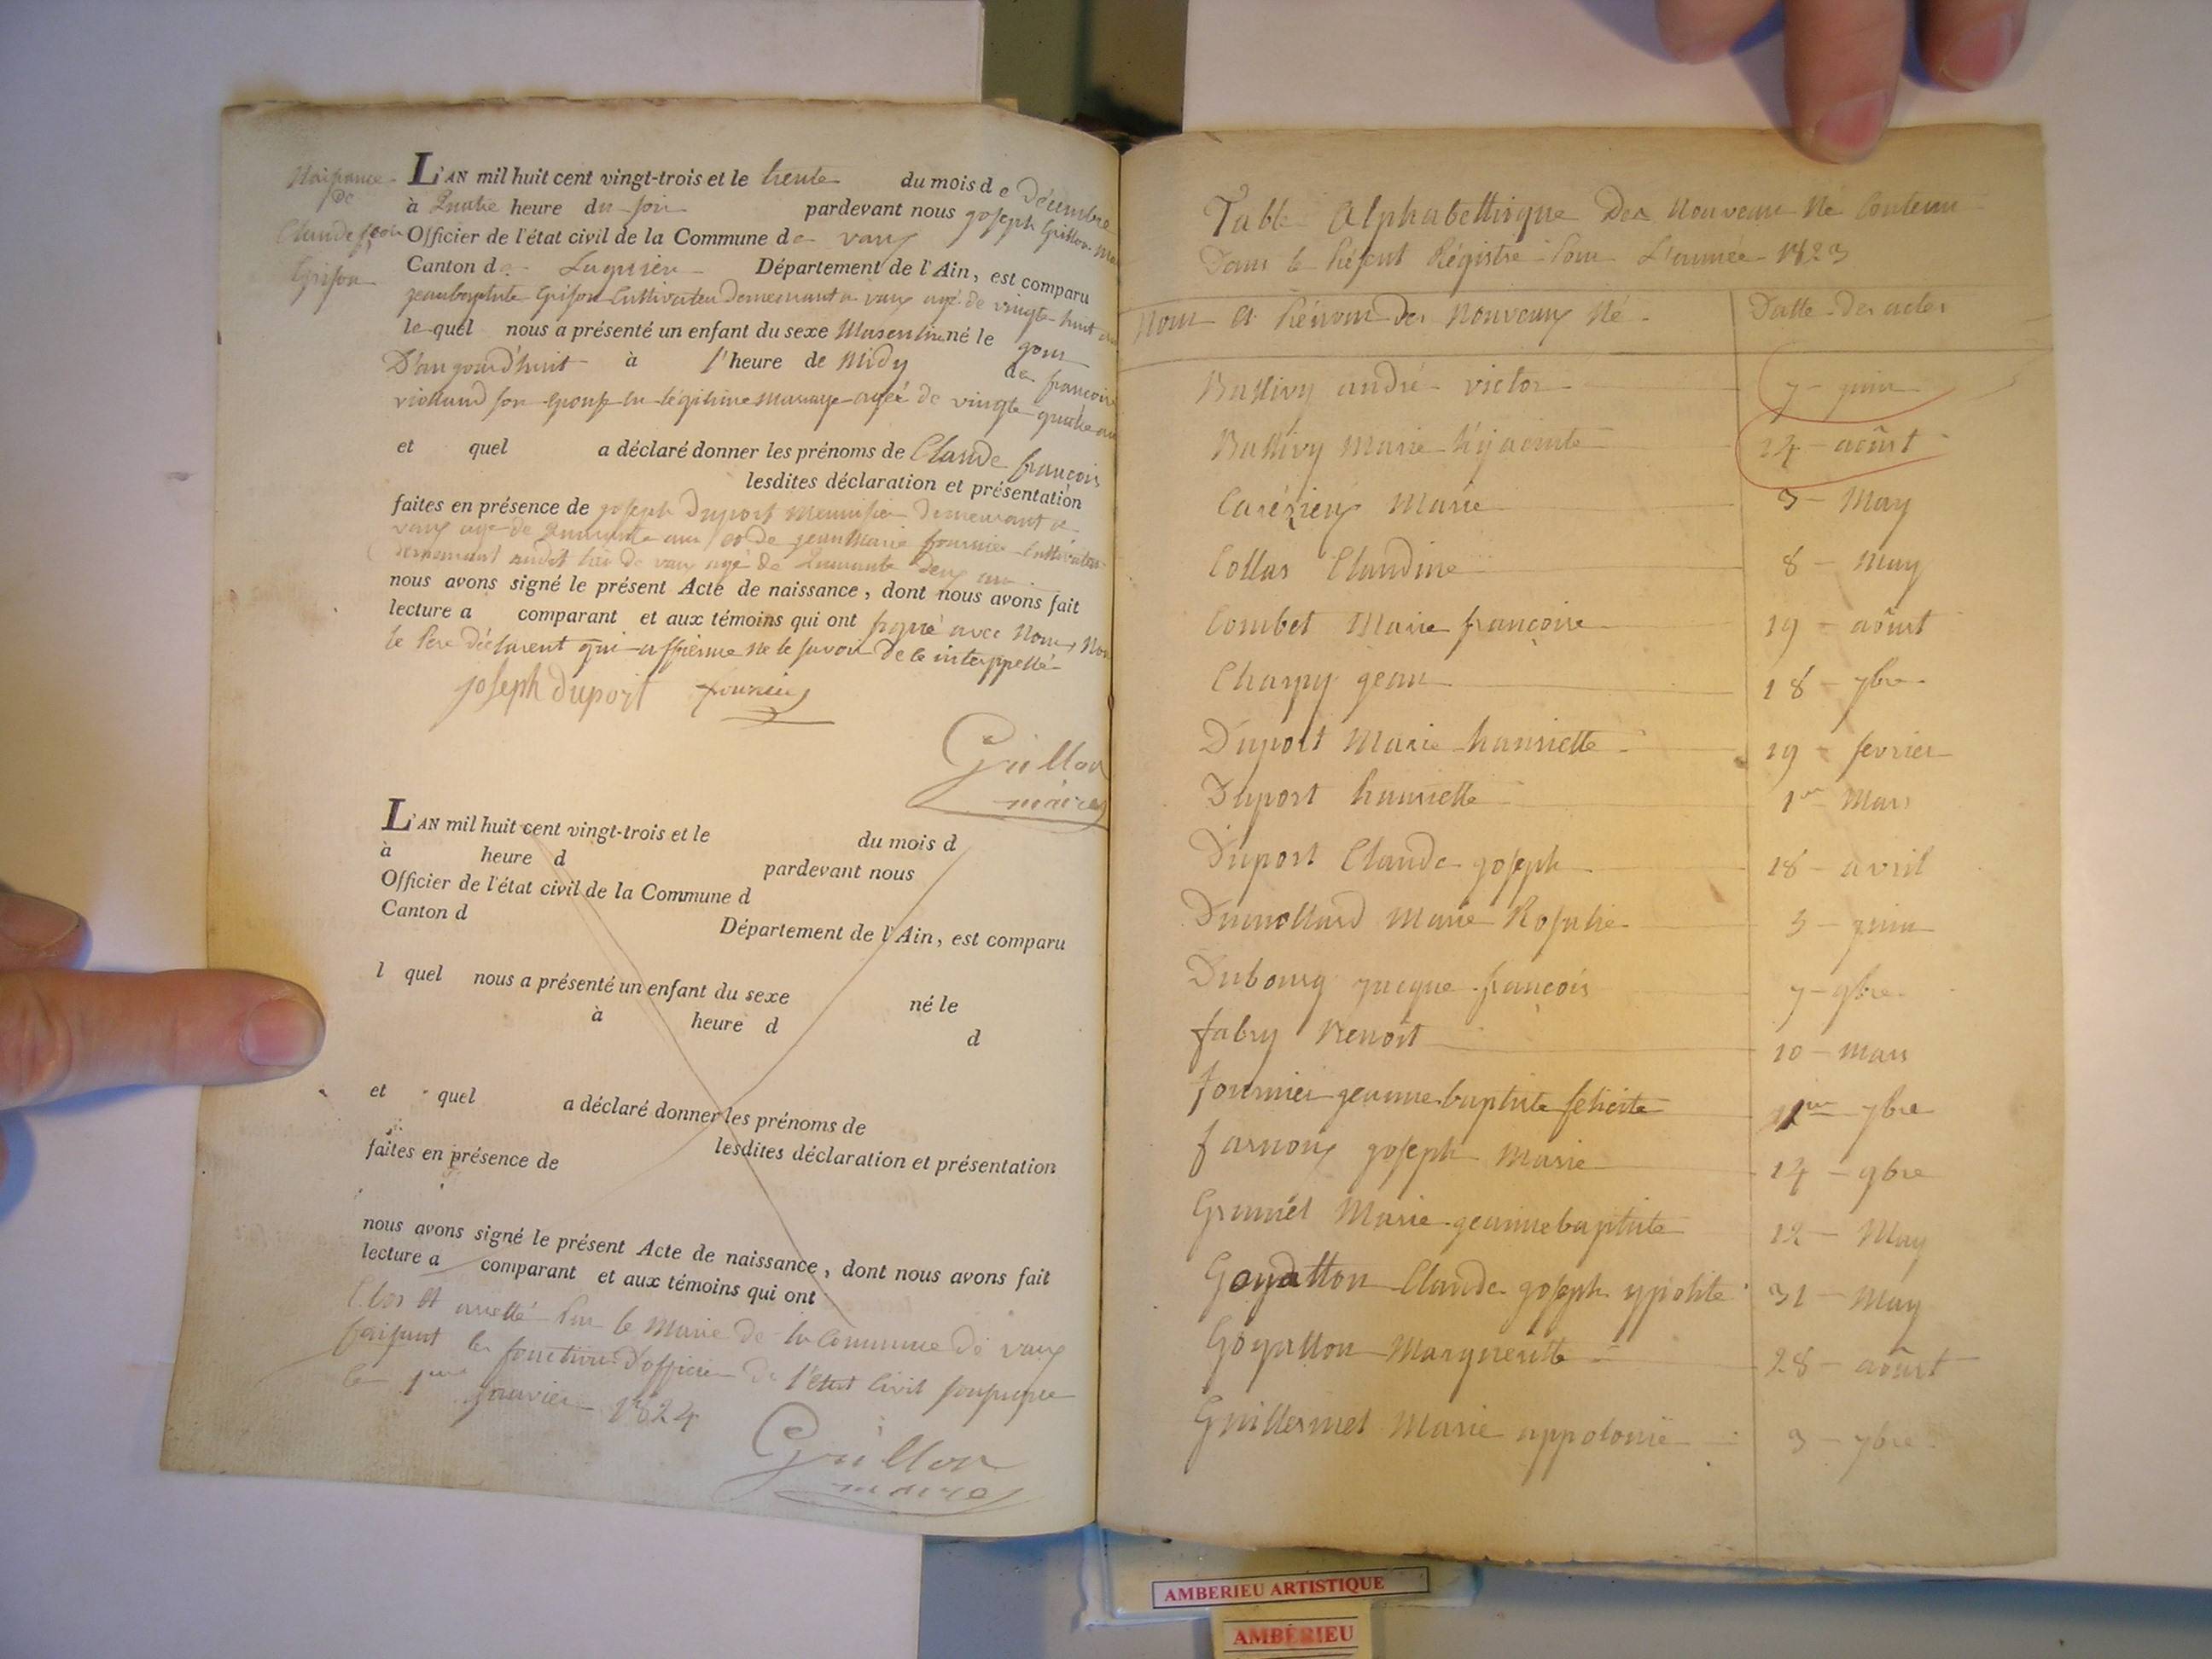 Naissance
de
Claude fçois
Grison
L'AN mil huit cent vingt-trois et le trente du mois de Décembre
à Quatre heure du soir pardevant nous joseph Guillon Ma
Officier de l'état civil de la Commune de vaux
Canton de Lagnieu Département de l'Ain, est comparu
jeanbaptiste Grison Cultivateur Demeurant a vaux agé de vingte huit an
le quel nous a présenté un enfant du sexe Masculin né le jour
D'aujourd'huit à l'heure de Midy de françoise
violland son epouse en légitime mariage agée de vingte quatre an
et quel a déclaré donner les prénoms de Claude françois
lesdites déclaration et présentation
faites en présence de joseph Duport Menuisier Demeurant a
vaux agé de Quarante ans et de jean Marie fournier Cultivateur
demeurant audit lieu de vaux agé de Quarante deux an
nous avons signé le présent Acte de naissance, dont nous avons fait
lecture a comparant et aux témoins qui ont signé avec Nous, Non
le Pere déclarent qui affirme ne le savoir De ce interppellé
joseph duport fournier
Guillon
maire
L'AN mil huit cent vingt-trois et le du mois d
à heure d pardevant nous
Officier de l'état civil de la Commune d
Canton d Département de l'Ain, est comparu
l quel nous a présenté un enfant du sexe né le
à heure d d
et quel a déclaré donner les prénoms de
lesdites déclaration et présentation
faites en présence de
nous avons signé le présent Acte de naissance, dont nous avons fait
lecture a comparant et aux témoins qui ont
Clos et arretté Par le Maire de la Commune de vaux
faisant les fonctions D'officier de l'état Civil soussigné
le 1er janvier 1824
Guillon
maire
Table Alphabettisque Des Nouveau Né Contenu
Dans le Présent Régistre Pour L'année 1823
Nom et Prénom des Nouveaux Né Datte Des actes
Ballivy andré victor 7 juin
Ballivy Marie hyjacinte 24 aôust
Carézieux Marie 3 May
Collas Claudine 8 May
Combet Marie françoise 19 aôust
Charpy jean 18 7bre
Duport Marie hanriette 19 fevrier
Duport hanriette 1er Mars
Duport Claude joseph 18 avril
Dumollard Marie Rosalie 3 juin
Dubourg jacque françois 7 9bre
fabry Benoit 10 mars
fournier jeanne baptiste felicité 1er 7bre
farnoux joseph Marie 14 9bre
Grumel Marie jeanne baptiste 12 May
Goyatton Claude joseph ypolite 31 May
Goyatton Margueritte 28 aôust
Guillermet Marie appolonie 3 7bre
AMBERIEU ARTISTIQUE
AMBÉRIEU